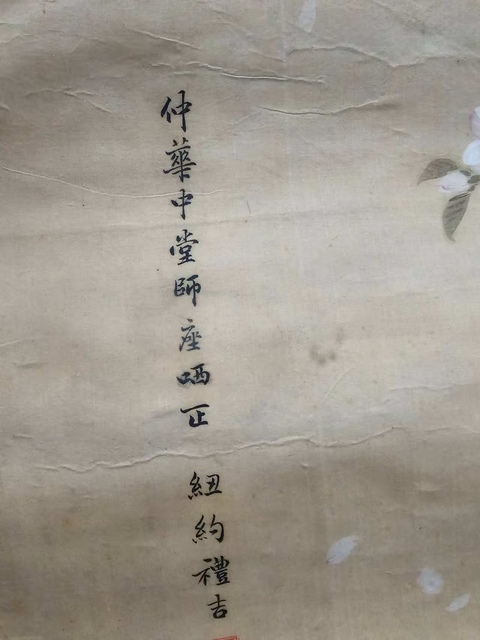 仲華中堂師座哂正 紐約禮吉